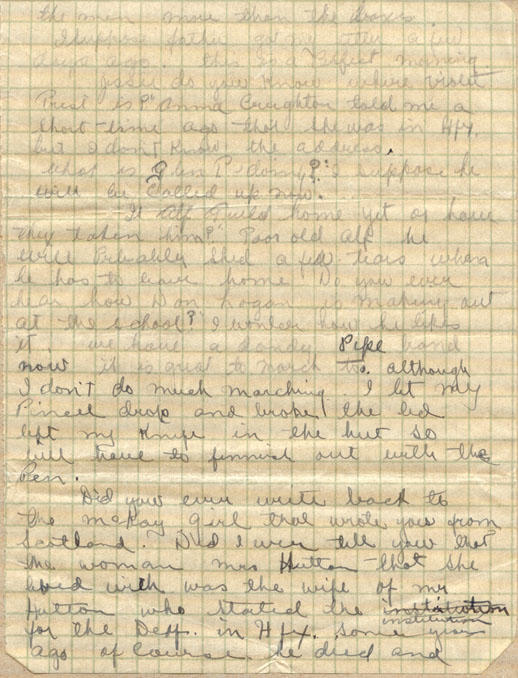 the men more than the boxes.
I suppose father got my letter a few
days ago. This is a perfect morning.
Jessie do you know where Violet
Prest is? Anna Creighton told me a
short time ago that she was in Hfx.
but I don't know the address.
What is Glen P. doing? I suppose he
will be called up now.
Is Alf Auld home yet or have
they taken him? Poor old Alf he
will Probably shed a few tears when
he has to leave home Do you ever
hear how Don Logan is making out
at the school? I wonder how he likes
it. We have a dandy Pipe band
now it is great to march too. although
I don't do much marching. I let my
Pincel drop and broke the led
left my Knife in the hut so
will have to finnish out with the
Pen.
Did you ever write back to
the McKay girl that wrote you from
Scotland. Did I ever tell you that
the woman Mrs Hutton that she
lived with was the wife of Mr
Hutton who started the institution
institution
for the Deff. in Hfx. some years
ago of course he died and